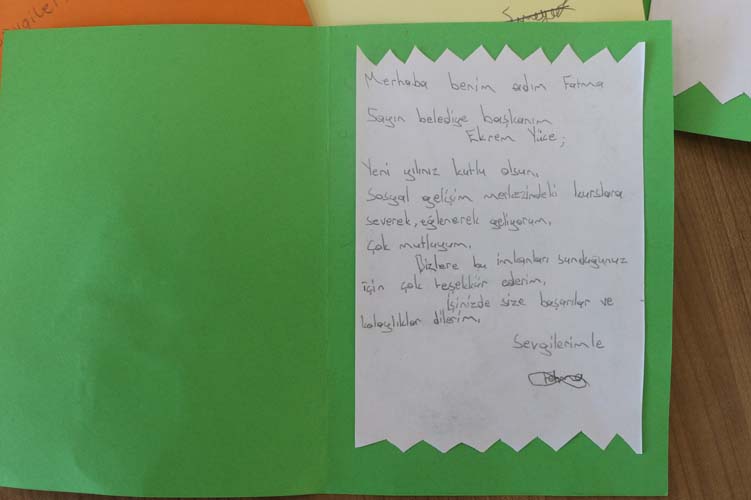 Merhaba benim adım Fatma
Sayın belediye başkanım
Ekrem Yüce;
Yeni yılınız kutlu olsun.
Sosyal gelişim merkezindeki kurslara
severek, eğlenerek geliyorum.
Çok mutluyum.
Bizlere bu imkanları sunduğunuz
için çok teşekkür ederim.
İşinizde size başarılar ve
kolaylıklar dilerim.
Sevgilerimle
Fatma